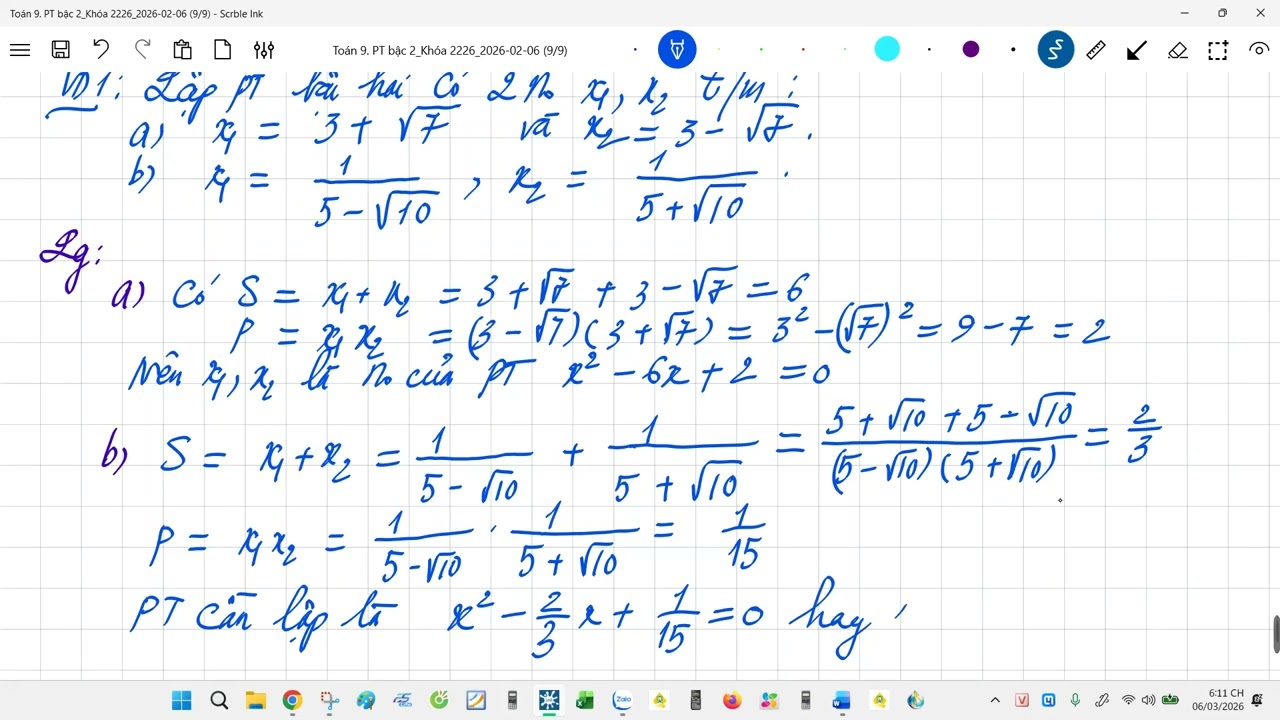 Toán 9. PT bậc 2_Khóa 2226_2026-02-06 (9/9) - Scrble Ink
Toán 9. PT bậc 2_Khóa 2226_2026-02-06 (9/9)
VD1: Lập PT bậc hai có 2 no x₁, x₂ t/m:
a) x₁ = 3 + √7 và x₂ = 3 - √7.
b) x₁ = 1/(5 - √10), x₂ = 1/(5 + √10).
Lg:
a) Có S = x₁ + x₂ = 3 + √7 + 3 - √7 = 6
P = x₁x₂ = (3 - √7)(3 + √7) = 3² - (√7)² = 9 - 7 = 2
Nên x₁, x₂ là no của PT x² - 6x + 2 = 0
b) S = x₁ + x₂ = 1/(5 - √10) + 1/(5 + √10) = (5 + √10 + 5 - √10)/((5 - √10)(5 + √10)) = 2/3
P = x₁x₂ = 1/(5 - √10) · 1/(5 + √10) = 1/15
PT cần lập là x² - 2/3 x + 1/15 = 0 hay
6:11 CH
06/03/2026